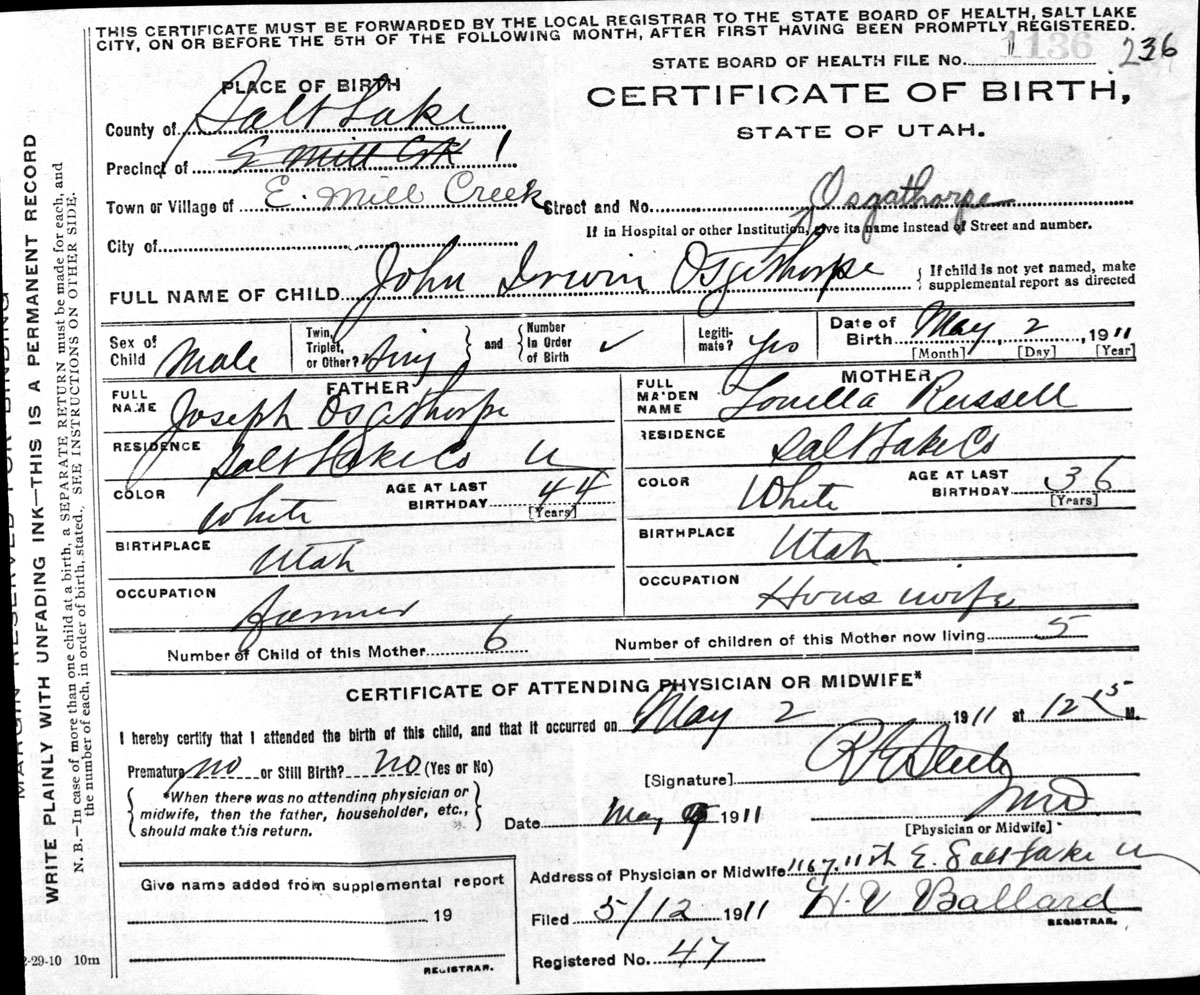 THIS CERTIFICATE MUST BE FORWARDED BY THE LOCAL REGISTRAR TO THE STATE BOARD OF HEALTH, SALT LAKE
CITY, ON OR BEFORE THE 5TH OF THE FOLLOWING MONTH, AFTER FIRST HAVING BEEN PROMPTLY REGISTERED.
STATE BOARD OF HEALTH FILE No. 1136 236
PLACE OF BIRTH
CERTIFICATE OF BIRTH,
STATE OF UTAH.
County of Salt Lake
Precinct of E Mill Crk 1
Town or Village of E. Mill Creek Street and No. Osgathorpe
If in Hospital or other Institution, give its name instead of Street and number.
City of
FULL NAME OF CHILD John Irwin Osgathorpe
If child is not yet named, make
supplemental report as directed
Sex of Child Male Twin, Triplet, or Other? Sing and Number In Order of Birth ✓ Legiti-mate? Yes Date of Birth May 2, 1911
[Month] [Day] [Year]
FATHER MOTHER
FULL NAME Joseph Osgathorpe FULL MAIDEN NAME Louella Russell
RESIDENCE Salt Lake Co U RESIDENCE Salt Lake Co
COLOR White AGE AT LAST BIRTHDAY 44 [Years] COLOR White AGE AT LAST BIRTHDAY 36 [Years]
BIRTHPLACE Utah BIRTHPLACE Utah
OCCUPATION Farmer OCCUPATION Hous wife
Number of Child of this Mother 6 Number of children of this Mother now living 5
CERTIFICATE OF ATTENDING PHYSICIAN OR MIDWIFE*
I hereby certify that I attended the birth of this child, and that it occurred on May 2 1911 at 12 15 M.
Premature no or Still Birth? no (Yes or No)
[Signature]
M D
*When there was no attending physician or
midwife, then the father, householder, etc.,
should make this return.
Date May 9 1911
[Physician or Midwife]
Address of Physician or Midwife 1167. 11th E. Salt Lake U
Give name added from supplemental report
19
REGISTRAR.
Filed 5/12 1911 H. V Ballard
REGISTRAR.
Registered No. 47
-29-10 10m
MARGIN RESERVED FOR BINDING
WRITE PLAINLY WITH UNFADING INK—THIS IS A PERMANENT RECORD
N. B.—In case of more than one child at a birth, a SEPARATE RETURN must be made for each, and
the number of each, in order of birth, stated. SEE INSTRUCTIONS ON OTHER SIDE.